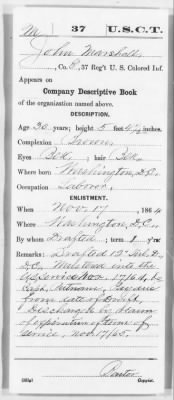 M 37 U.S.C.T.
John Marshall
, Co. B, 37 Reg't U. S. Colored Inf.
Appears on
Company Descriptive Book
of the organization named above.
DESCRIPTION.
Age 30 years; height 5 feet 4 inches.
Complexion
Eyes Blk; hair Blk.
Where born Washington, D.C.
Occupation Laborer
ENLISTMENT.
When Nov. 17, 1864
Where Washington, D.C.
By whom Drafted; term 1 y'rs.
Remarks: Drafted 12" Sub. D.
D.C. Mustered into the
US service Nov. 17/64, by
Capt. Putnam,
from date of Draft.
Discharged by reason
of expiration of term of
service, Nov. 17/65.
Copyist.